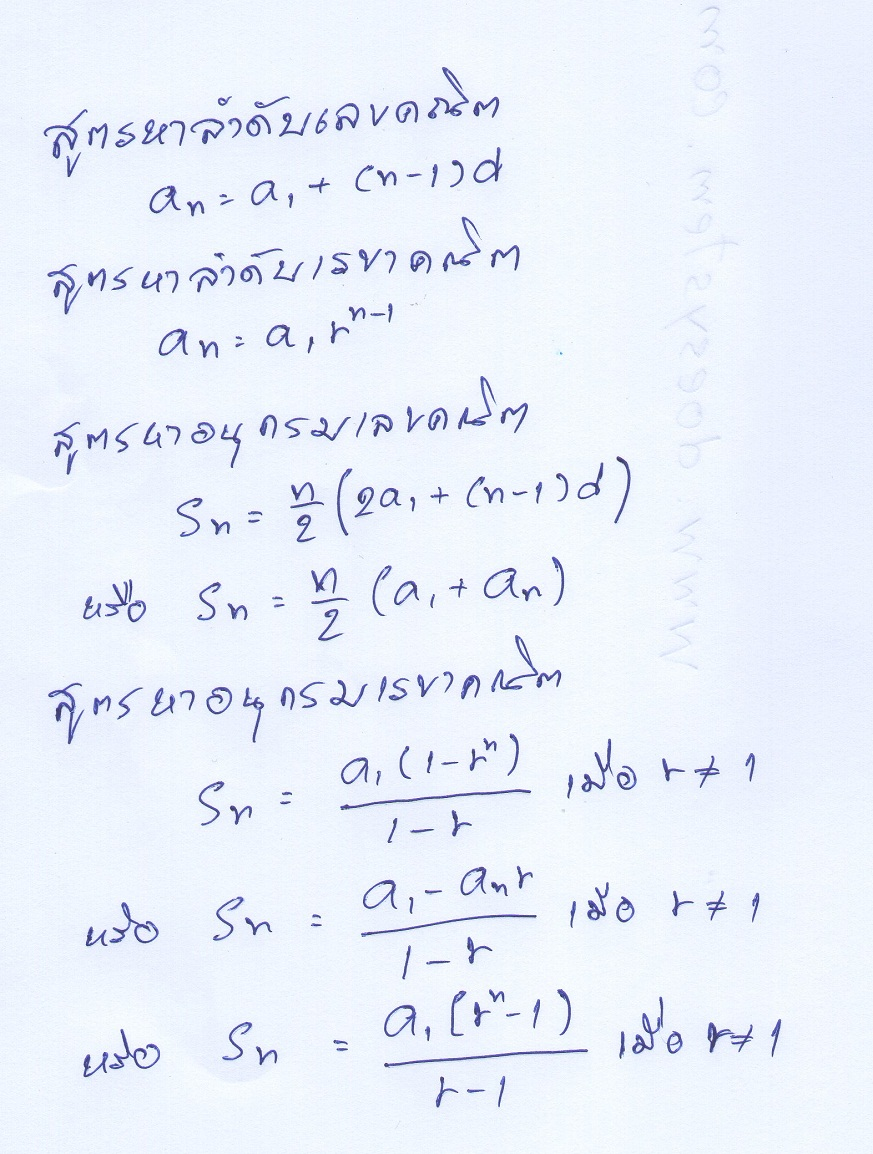 สูตรหาลำดับเลขคณิต
aₙ = a₁ + (n-1)d
สูตรหาลำดับเรขาคณิต
aₙ = a₁rⁿ⁻¹
สูตรหาอนุกรมเลขคณิต
Sₙ = n/2 (2a₁ + (n-1)d)
หรือ Sₙ = n/2 (a₁ + aₙ)
สูตรหาอนุกรมเรขาคณิต
Sₙ = a₁(1-rⁿ)/(1-r) เมื่อ r ≠ 1
หรือ Sₙ = (a₁ - aₙr)/(1-r) เมื่อ r ≠ 1
หรือ Sₙ = a₁(rⁿ-1)/(r-1) เมื่อ r ≠ 1